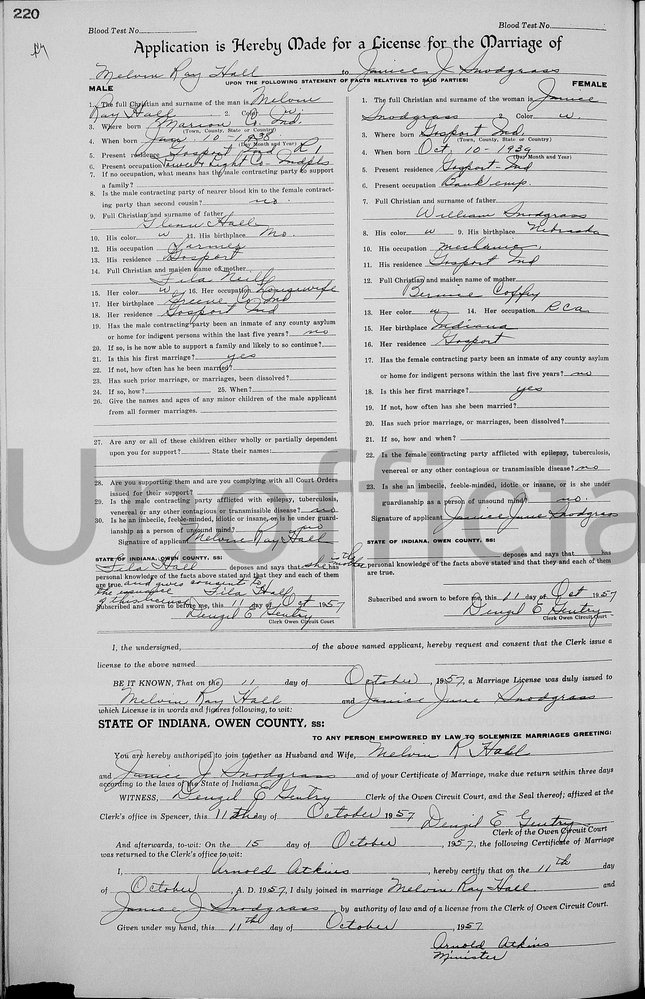 220
Blood Test No.
Blood Test No.
Application is Hereby Made for a License for the Marriage of
Melvin Ray Hall to Janice J Snodgrass
UPON THE FOLLOWING STATEMENT OF FACTS RELATIVES TO SAID PARTIES:
MALE
1. The full Christian and surname of the man is Melvin
Ray Hall 2. Color w.
3. Where born Marion Co. Ind.
(Town, County, State or Country)
4. When born Jan. 10 - 1938
(Day Month and Year)
5. Present residence Gosport Ind R 1
6. Present occupation Power & Light Co - Indpls
7. If no occupation, what means has the male contracting party to support
a family?
8. Is the male contracting party of nearer blood kin to the female contract-
ing party than second cousin? no.
9. Full Christian and surname of father
Glenn Hall
10. His color w 11. His birthplace Mo.
12. His occupation Farmer
13. His residence Gosport
14. Full Christian and maiden name of mother
Fila Neill
15. Her color w 16. Her occupation Housewife
17. Her birthplace Greene Co Ind
18. Her residence Gosport Ind
19. Has the male contracting party been an inmate of any county asylum
or home for indigent persons within the last five years? no
20. If so, is he now able to support a family and likely to so continue?
21. Is this his first marriage? yes
22. If not, how often has he been married?
23. Has such prior marriage, or marriages, been dissolved?
24. If so, how? 25. When?
26. Give the names and ages of any minor children of the male applicant
from all former marriages.
27. Are any or all of these children either wholly or partially dependent
upon you for support? State their names:
28. Are you supporting them and are you complying with all Court Orders
issued for their support?
29. Is the male contracting party afflicted with epilepsy, tuberculosis,
venereal or any other contagious or transmissible disease? no
30. Is he an imbecile, feeble-minded, idiotic or insane, or is he under guard-
ianship as a person of unsound mind? no
Signature of applicant Melvin Ray Hall
STATE OF INDIANA, OWEN COUNTY, ss:
Fila Hall deposes and says that she has
the mother
personal knowledge of the facts above stated and that they and each of them
are true. and gives consent to
the issuance Fila Hall
of this license
Subscribed and sworn to before me, this 11 day of Oct 1957
Denzil E Gentry
Clerk Owen Circuit Court
FEMALE
1. The full Christian and surname of the woman is Janice
Snodgrass 2. Color w.
3. Where born Gosport Ind.
(Town, County, State or Country)
4. When born Oct. 10 - 1939
(Day Month and Year)
5. Present residence Gosport - Ind
6. Present occupation Bank emp.
7. Full Christian and surname of father
William Snodgrass
8. His color w 9. His birthplace Nebraska
10. His occupation mechanic.
11. His residence Gosport Ind
12. Full Christian and maiden name of mother
Bernice Coffey
13. Her color w 14. Her occupation RCA
15. Her birthplace Indiana
16. Her residence Gosport
17. Has the female contracting party been an inmate of any county asylum
or home for indigent persons within the last five years? no
18. Is this her first marriage? yes
19. If not, how often has she been married?
20. Has such prior marriage, or marriages, been dissolved?
21. If so, how and when?
22. Is the female contracting party afflicted with epilepsy, tuberculosis,
venereal or any other contagious or transmissible disease? no
23. Is she an imbecile, feeble-minded, idiotic or insane, or is she under
guardianship as a person of unsound mind? no.
Signature of applicant Janice June Snodgrass
STATE OF INDIANA, OWEN COUNTY, ss:
deposes and says that has
personal knowledge of the facts above stated and that they and each of them
are true.
Subscribed and sworn to before me, this 11 day of Oct 1957
Denzil E Gentry
Clerk Owen Circuit Court
Unofficia
I, the undersigned, of the above named applicant, hereby request and consent that the Clerk issue a
license to the above named
BE IT KNOWN, That on the 11 day of October, 1957, a Marriage License was duly issued to
Melvin Ray Hall and Janice June Snodgrass
which License is in words and figures following, to wit:
STATE OF INDIANA, OWEN COUNTY, ss:
TO ANY PERSON EMPOWERED BY LAW TO SOLEMNIZE MARRIAGES GREETING:
You are hereby authorized to join together as Husband and Wife, Melvin R Hall
and Janice J Snodgrass and of your Certificate of Marriage, make due return within three days
according to the laws of the State of Indiana.
WITNESS, Denzil E Gentry Clerk of the Owen Circuit Court, and the Seal thereof; affixed at the
Clerk's office in Spencer, this 11th day of October 1957
Denzil E Gentry
Clerk of the Owen Circuit Court
And afterwards, to-wit: On the 15 day of October, 1957, the following Certificate of Marriage
was returned to the Clerk's office to wit:
I, Arnold Atkins, hereby certify that on the 11th day
of October A. D. 1957, I duly joined in marriage Melvin Ray Hall and
Janice J Snodgrass by authority of law and of a license from the Clerk of Owen Circuit Court.
Given under my hand, this 11th day of October, 1957
Arnold Atkins
Minister